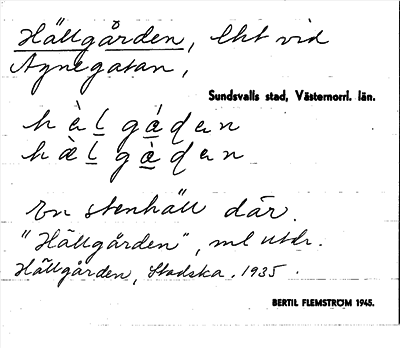 Hällgården, lht vid
Agnegatan,
Sundsvalls stad, Västernorrl. län.
hàl gád̨en
hæ̀l gæ̀d̨en
En stenhäll där.
"Hällgården", ml utdr.
Hällgården, Stadska. 1935.
BERTIL FLEMSTRÖM 1945.